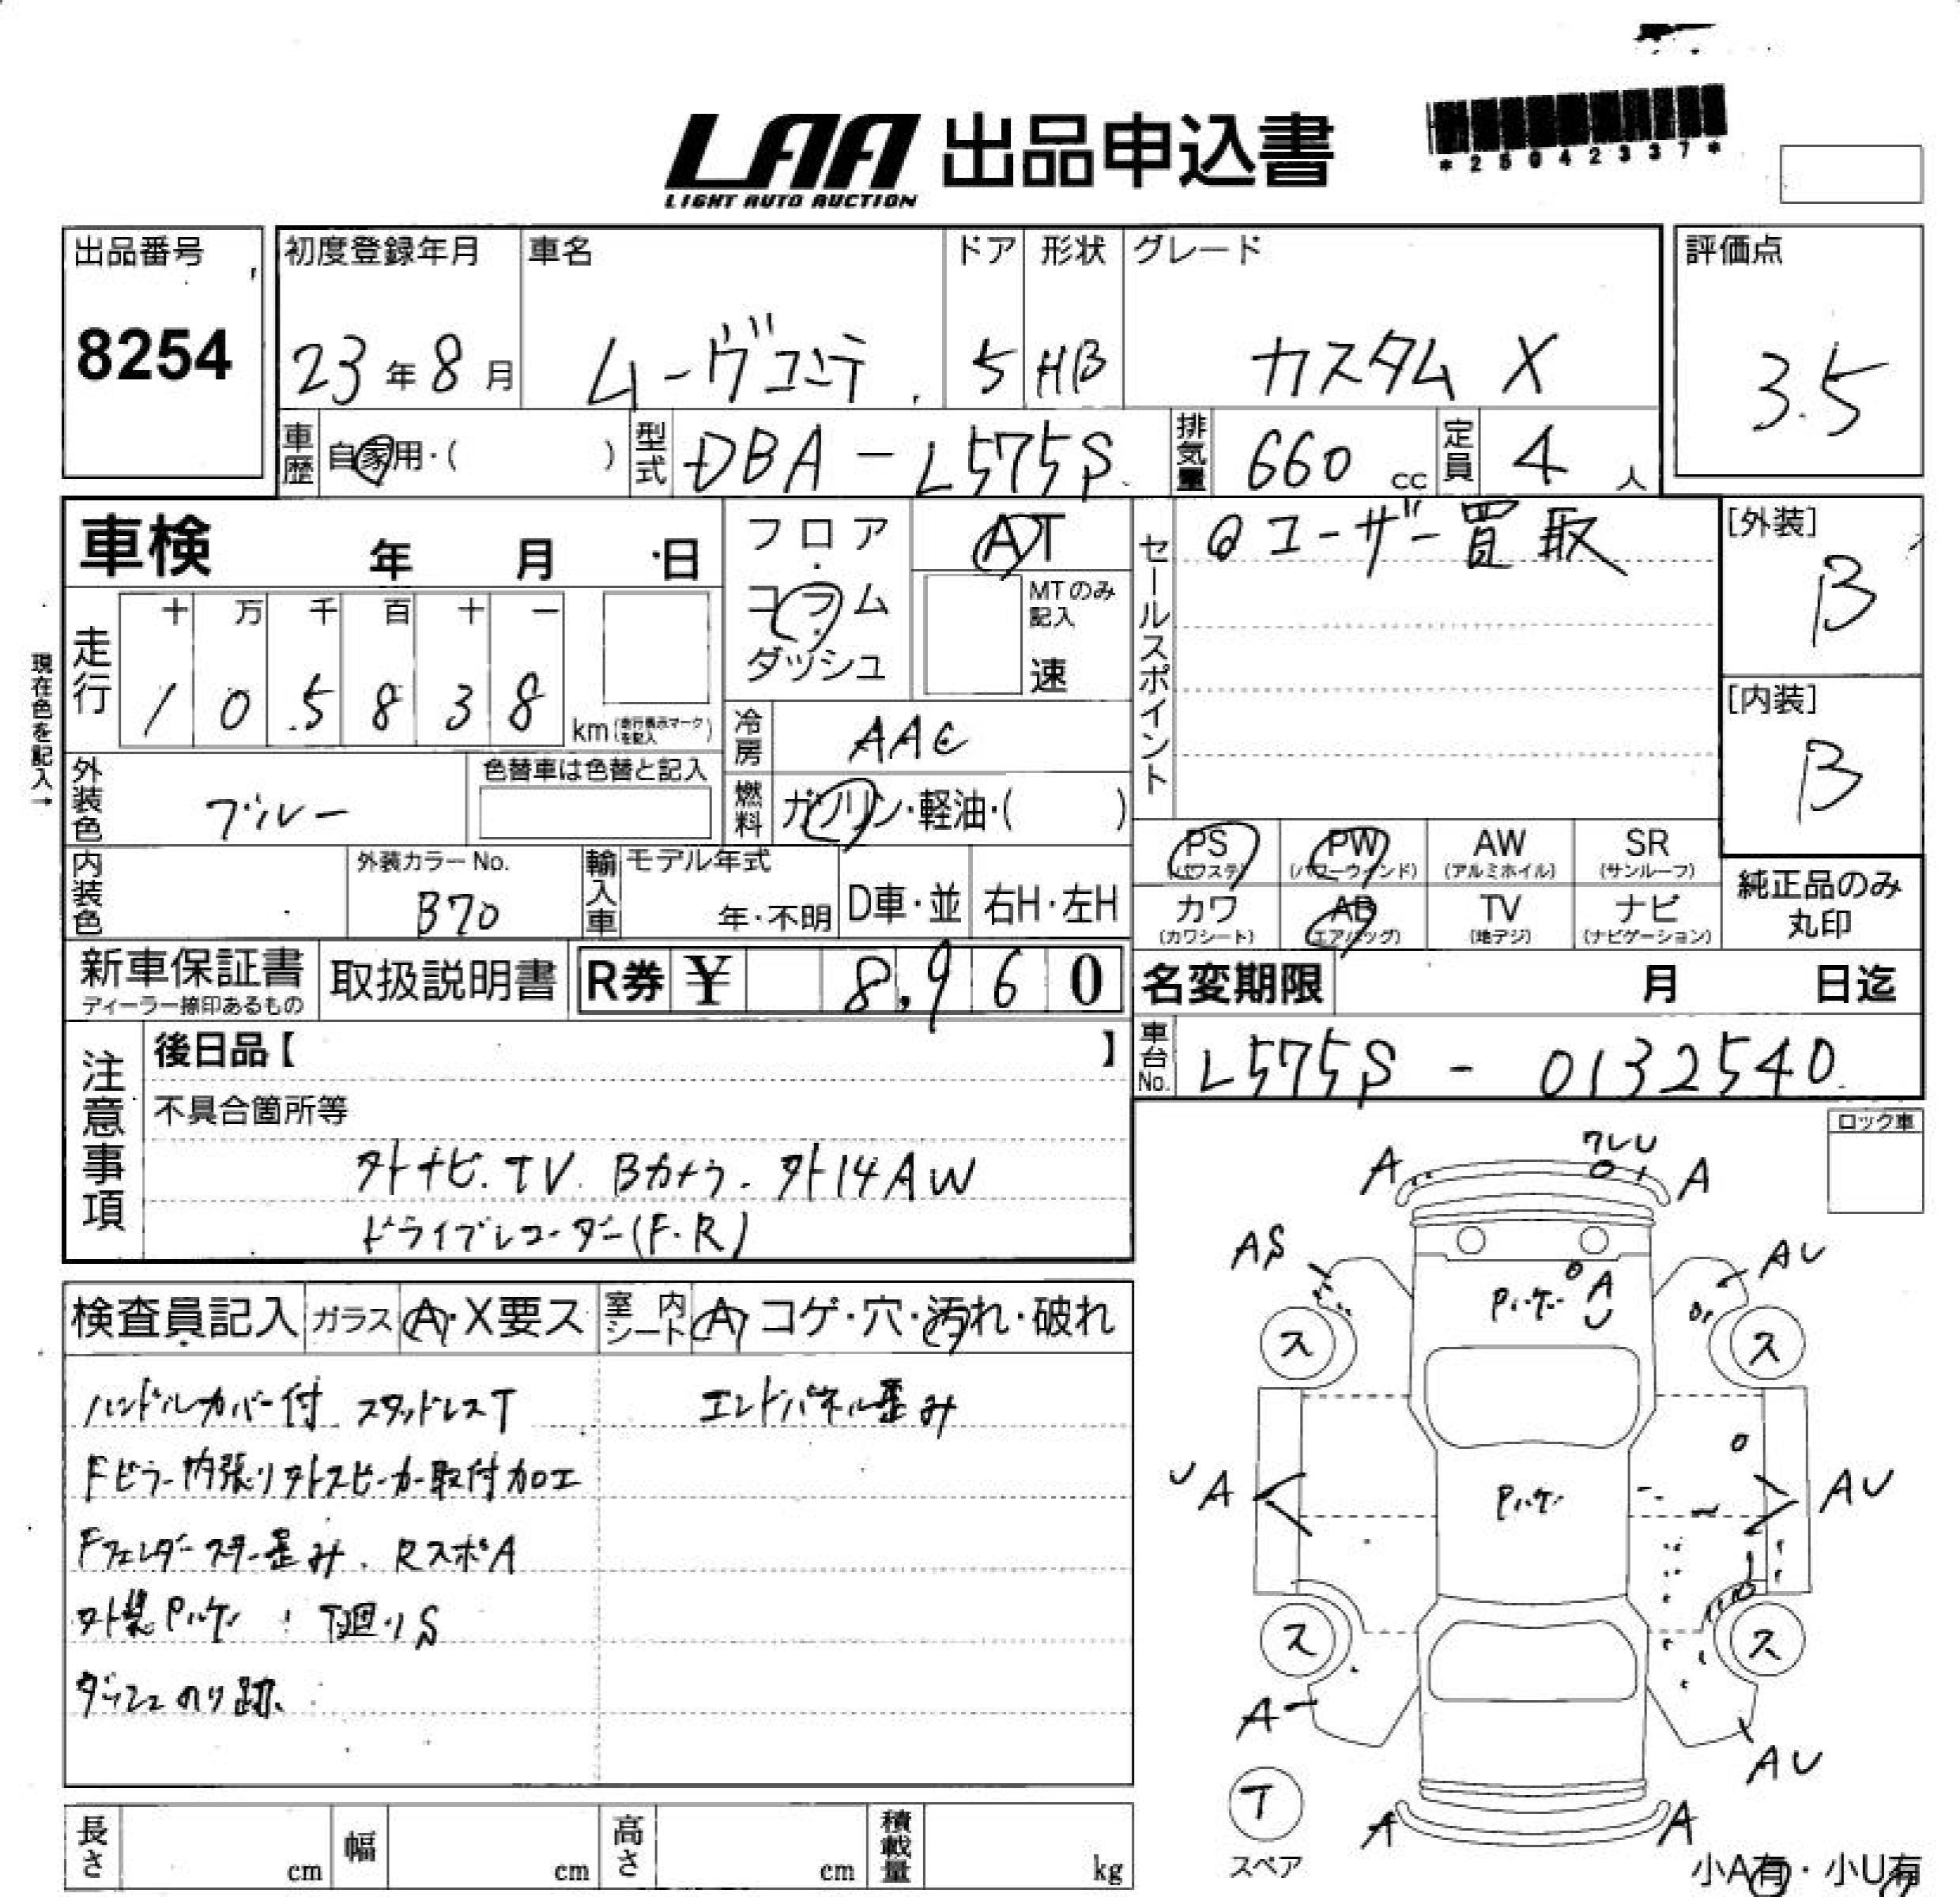 LAA 出品申込書
LIGHT AUTO AUCTION
*25042337*
出品番号
8254
初度登録年月
23年8月
車名
ムーヴコンテ
ドア
5
形状
HB
グレード
カスタム X
評価点
3.5
車歴
自家用・( )
型式
DBA-L575S
排気量
660 cc
定員
4 人
車検 年 月 日
フロア・コラム・ダッシュ
AT
MTのみ記入
速
セールスポイント
@ユーザー買取
[外装]
B
[内装]
B
現在色を記入→
走行
十 万 千 百 十 一
1 0 5 8 3 8
km (走行表示マークを記入)
冷房
AAC
燃料
ガソリン・軽油・( )
外装色
ブルー
色替車は色替と記入
内装色
外装カラーNo.
B70
輸入車
モデル年式
年・不明
D車・並
右H・左H
PS (パワステ)
PW (パワーウィンド)
AW (アルミホイル)
SR (サンルーフ)
カワ (カワシート)
AB (エアバッグ)
TV (地デジ)
ナビ (ナビゲーション)
純正品のみ丸印
新車保証書
ディーラー捺印あるもの
取扱説明書
R券 ¥ 8,960
名変期限 月 日迄
車台No.
L575S - 0132540
注意事項
後日品【 】
不具合箇所等
外ナビ.TV.Bカメラ.外14AW
ドライブレコーダー(F.R)
ロック車
検査員記入
ガラス
A・X要ス
室内シート
A コゲ・穴・汚れ・破れ
ハンドルカバー付 スタッドレスT
エンドパネル歪み
Fピラー内張り外スピーカー取付加工
Fフェンダーステー歪み.RスポA
外装Pハゲ 下廻りS
ダッシュのり跡.
A
ワレU
A
AS
AU
Pハゲ
A
U
ス
ス
UA
Pハゲ
AU
ス
ス
A
AU
T
スペア
A
A
小A有・小U有
長さ cm
幅 cm
高さ cm
積載量 kg